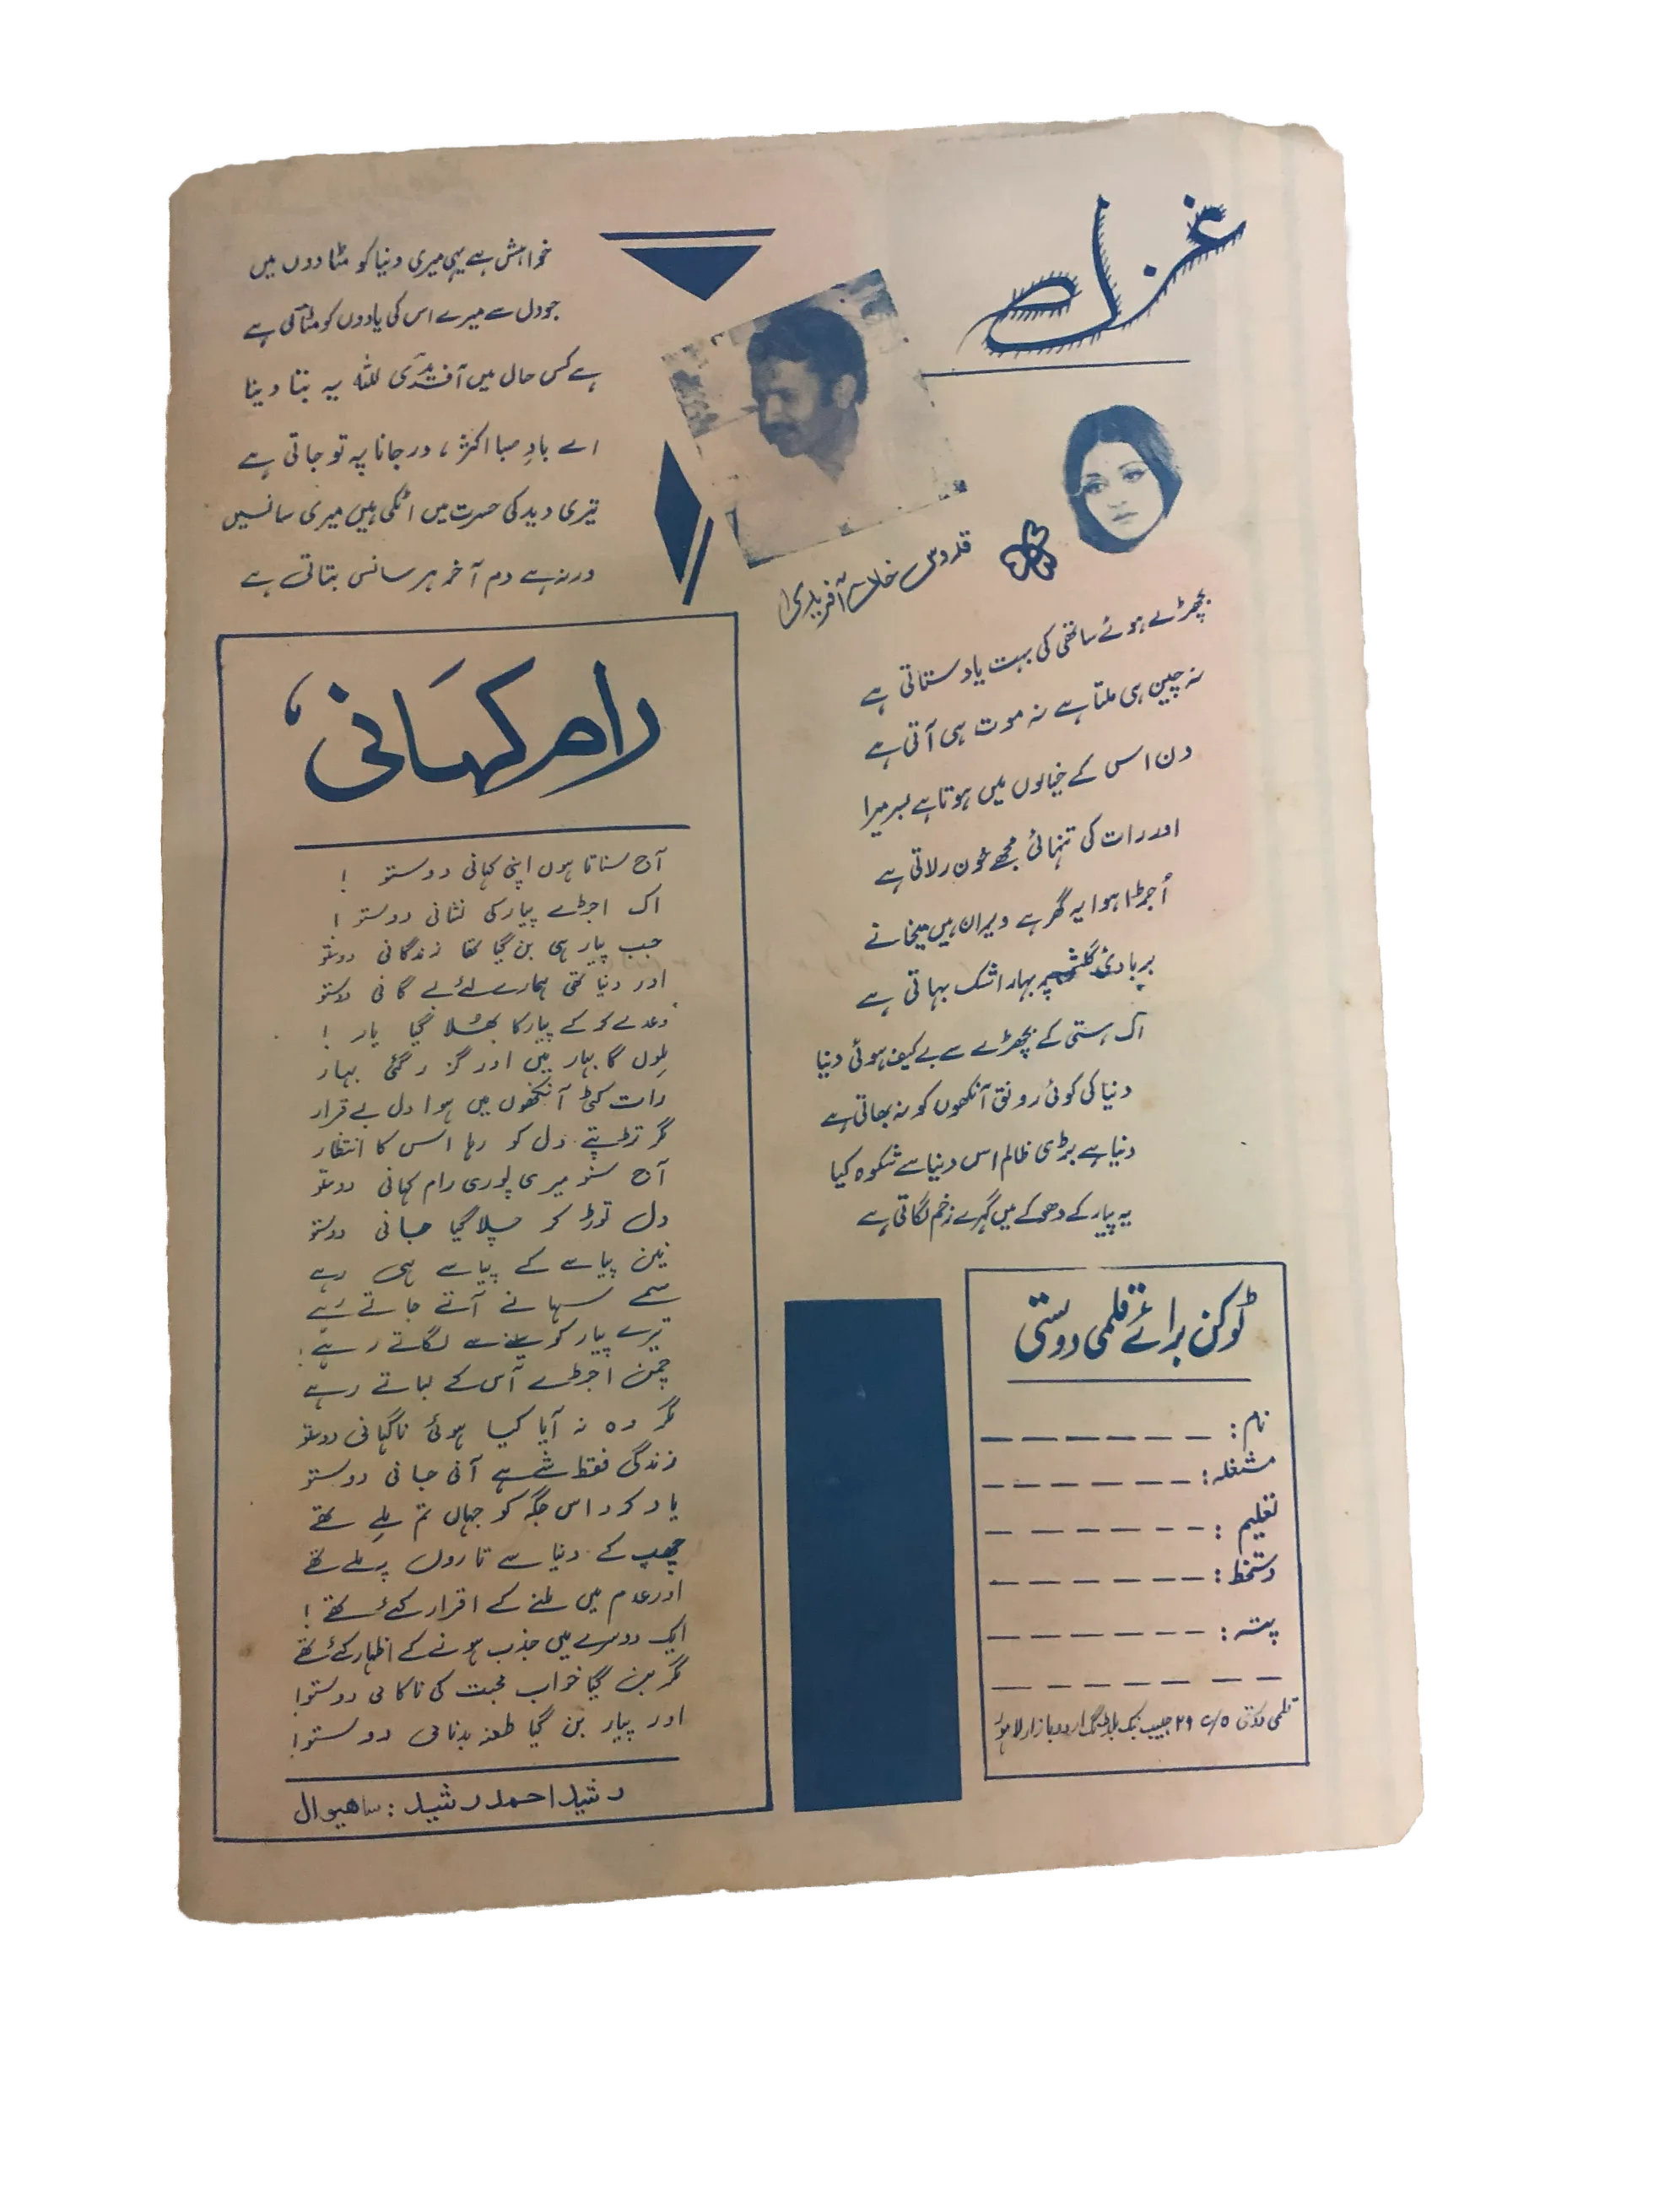 غزل
قدوس خان آفریدی
بچھڑے ہوئے ساتھی کی بہت یاد ستاتی ہے
نہ چین ہی ملتا ہے نہ موت ہی آتی ہے
دن اس کے خیالوں میں ہوتا ہے بسر میرا
اور رات کی تنہائی مجھے خون رلاتی ہے
اُجڑا ہوا یہ گھر ہے ویران ہیں میخانے
بربادیٔ گلشن پر بہار اشک بہاتی ہے
اک ہستی کے بچھڑے سے بے کیف ہوئی دنیا
دنیا کی کوئی رونق آنکھوں کو نہ بھاتی ہے
دنیا ہے بڑی ظالم اس دنیا سے شکوہ کیا
یہ پیار کے دھوکے میں گہرے زخم لگاتی ہے
خواہش ہے یہی میری دنیا کو مٹا دوں میں
جو دل سے میرے اس کی یادوں کو مٹاتی ہے
ہے کس حال میں آفریدی للہ یہ بتا دینا
اے بادِ صبا اکثر، در جانا پہ تو جاتی ہے
تیری دید کی حسرت میں اٹکی ہیں میری سانسیں
ورنہ ہے دم آخر ہر سانس بتاتی ہے
رام کہانی
آج سناتا ہوں اپنی کہانی دوستو !
اک اجڑے پیار کی نشانی دوستو !
جب پیار ہی بن گیا تھا زندگانی دوستو
اور دنیا تھی ہمارے لئے بے گانی دوستو
وعدے کر کے پیار کا بھلا گیا یار !
ملوں گا بہار میں اور گزر گئی بہار
رات کٹی آنکھوں میں ہوا دل بے قرار
مگر تڑپتے دل کو رہا اس کا انتظار
آج سنو میری پوری رام کہانی دوستو
دل توڑ کر چلا گیا جانی دوستو
نین پیاسے کے پیاسے ہی رہے
سمے سہانے آتے جاتے رہے
تیرے پیار کو سینے سے لگاتے رہے !
چمن اجڑے آس کے بساتے رہے
مگر وہ نہ آیا کیا ہوئی ناگہانی دوستو
زندگی فقط شے ہے آنی جانی دوستو
یاد کرو اس جگہ کو جہاں تم ملے تھے
چھپ کے دنیا سے تاروں پہ ملے تھے
اور عدم میں ملنے کے اقرار کئے تھے !
ایک دوسرے میں جذب ہونے کے اظہار کئے تھے
مگر بن گیا خواب محبت کی ناکامی دوستو!
اور پیار بن گیا طعنہ بدنامی دوستو!
رشید احمد رشید : ساھیوال
ٹوکن برائے قلمی دوستی
نام :
مشغلہ :
تعلیم :
دستخط :
پتہ :
قلمی دوستی ۲۹ حبیب بنک بلڈنگ اردو بازار لاہور